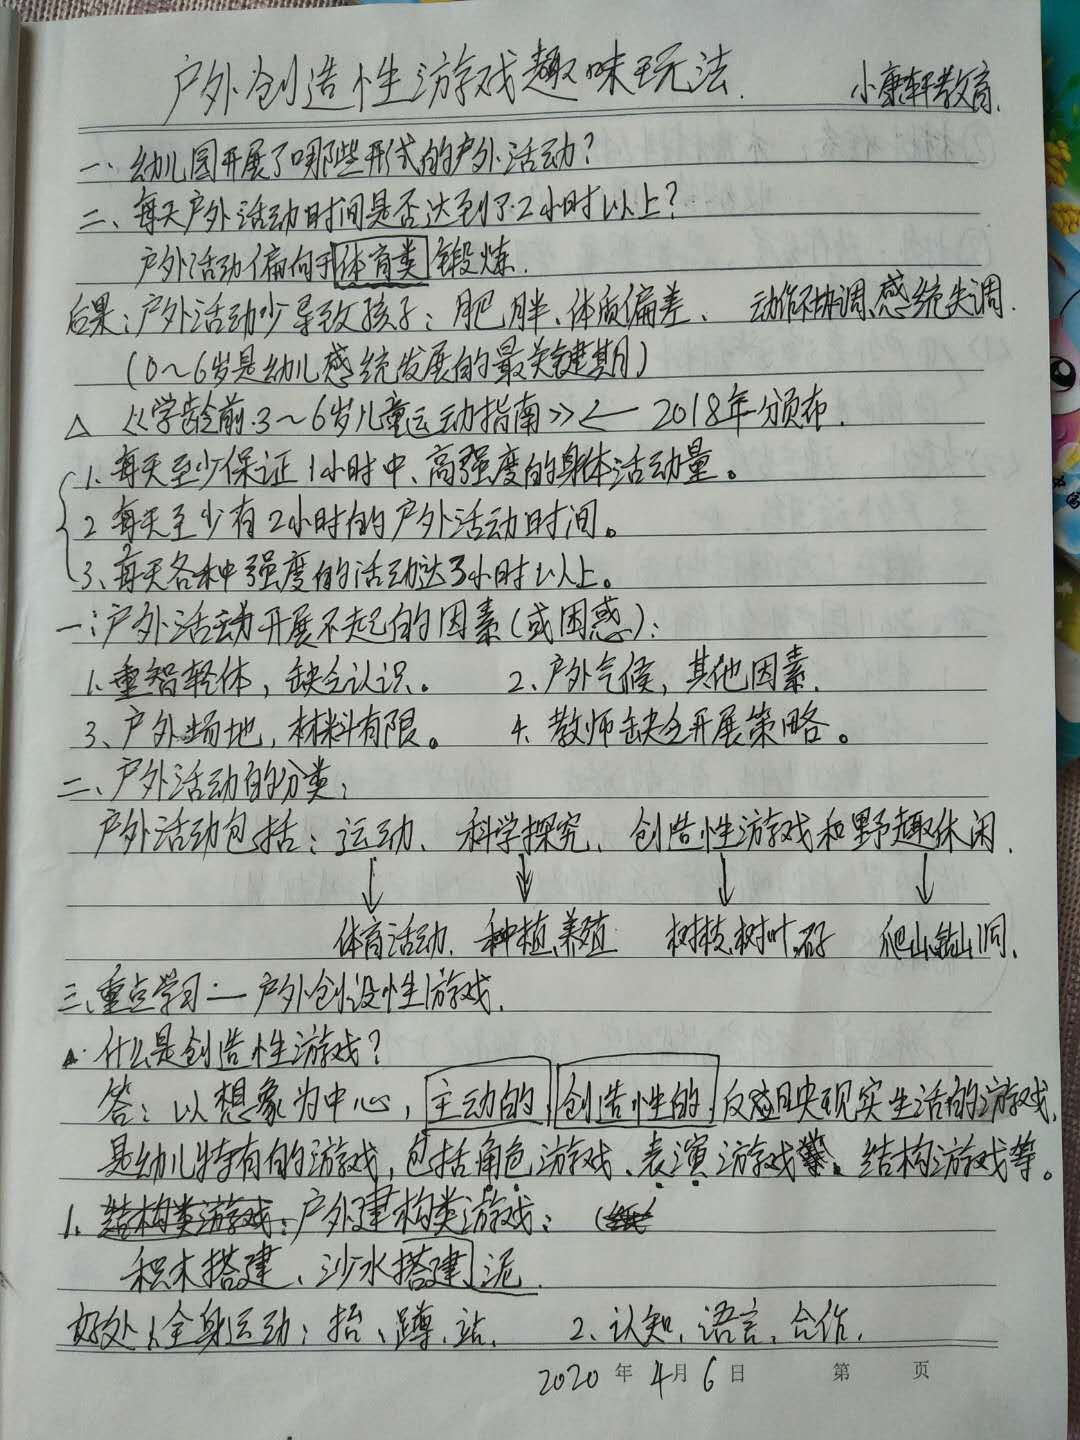 户外创造性游戏趣味玩法.
小康轩教育.
一、幼儿园开展了哪些形式的户外活动?
二、每天户外活动时间是否达到了2小时以上?
户外活动偏向于体育类锻炼.
后果:户外活动少导致孩子:肥胖、体质偏差、动作不协调、感统失调.
(0~6岁是幼儿感统发展的最关键期)
△ 《学龄前3~6岁儿童运动指南》← 2018年颁布.
1、每天至少保证1小时中、高强度的身体活动量。
2 每天至少有2小时的户外活动时间。
3、每天各种强度的活动达3小时以上。
一:户外活动开展不起的因素(或困惑):
1、重智轻体,缺乏认识。 2、户外气候,其他因素.
3、户外场地,材料有限。 4、教师缺乏开展策略。
二、户外活动的分类:
户外活动包括:运动、科学探究、创造性游戏和野趣休闲.
↓ ↓ ↓ ↓
体育活动. 种植、养殖 树枝、树叶、石子 爬山、钻山洞.
三、重点学习:— 户外创设性游戏.
▲·什么是创造性游戏?
答:以想象为中心,主动的,创造性的,反应现实生活的游戏,
是幼儿特有的游戏,包括角色游戏、表演游戏、结构游戏等。
1、结构类游戏:户外建构类游戏:
积木搭建、沙水搭建、泥.
好处:1、全身运动:抬、蹲、站. 2、认知、语言、合作.
2020年4月6日 第 页